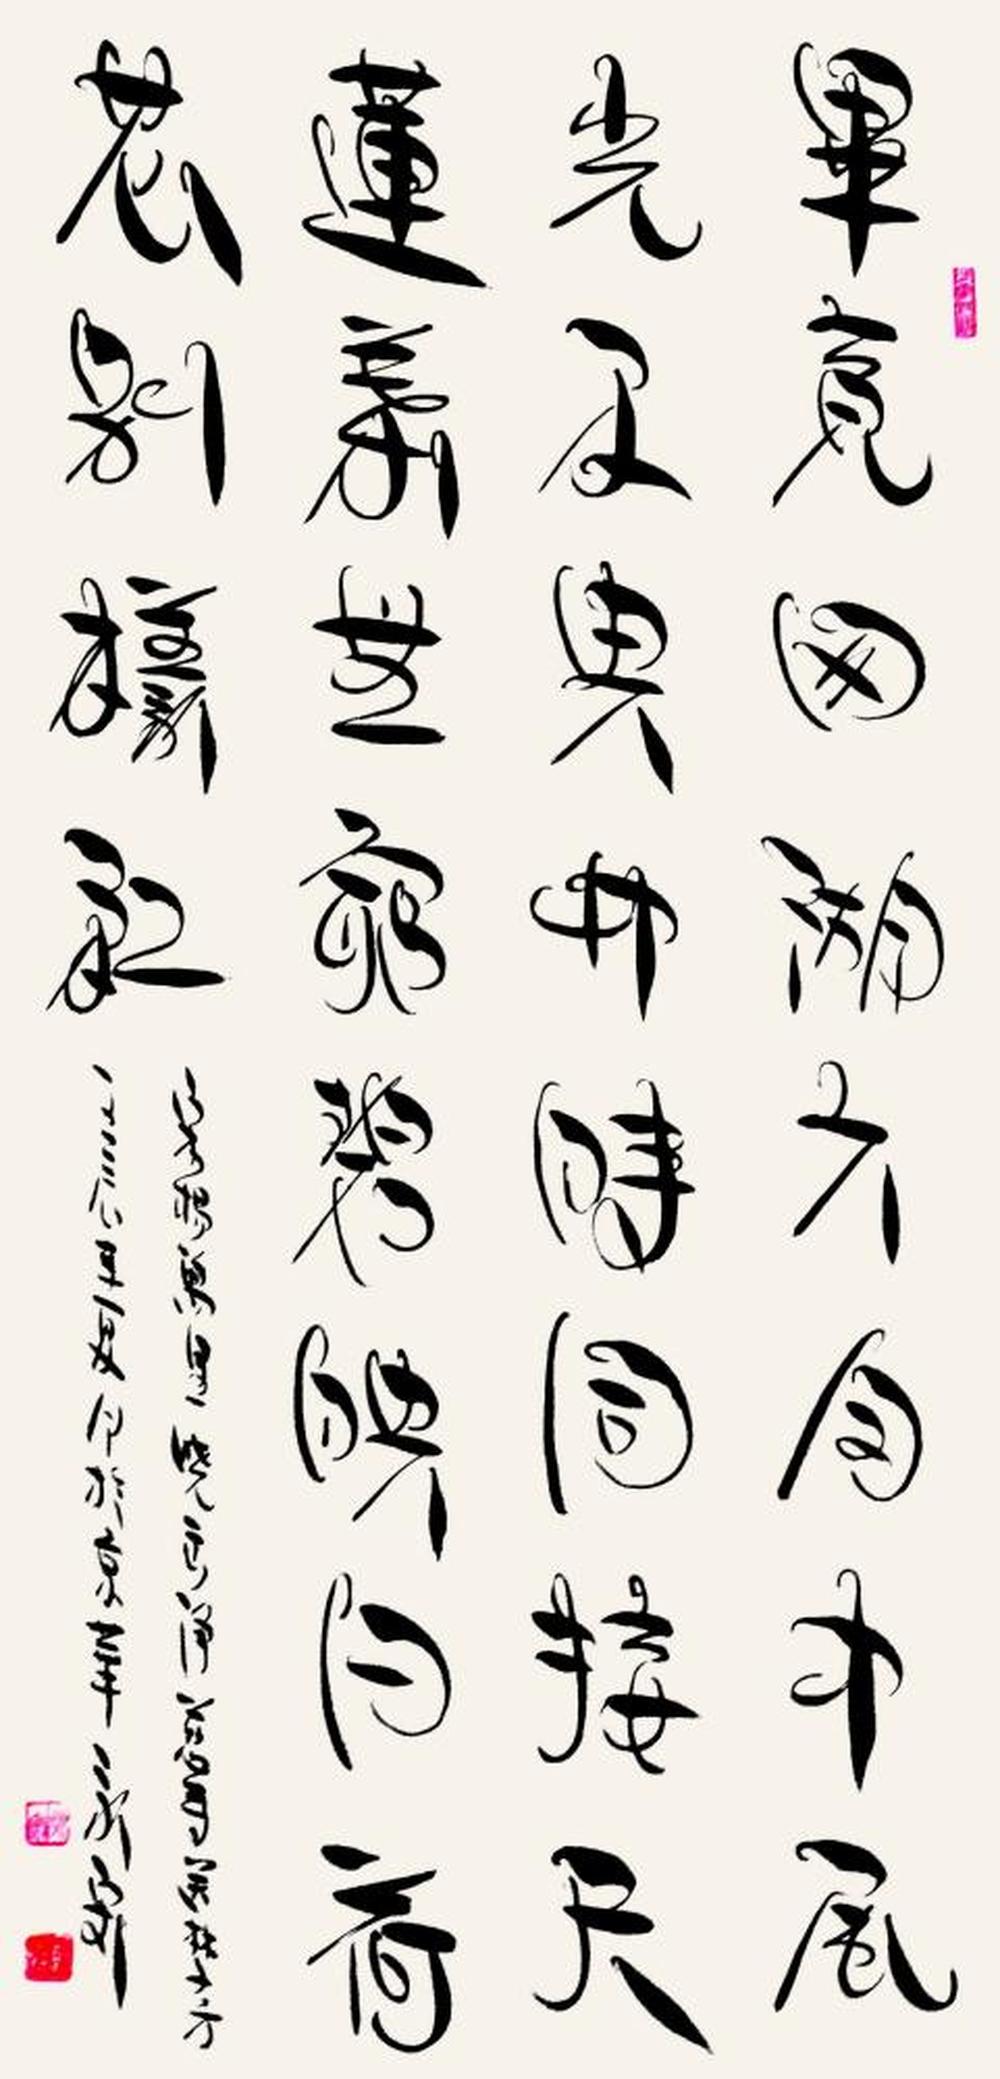 畢竟西湖六月中風
光不與四時同接天
蓮葉無窮碧映日荷
花別樣紅
楊萬里曉出淨慈寺送林子方
年夏月於京華